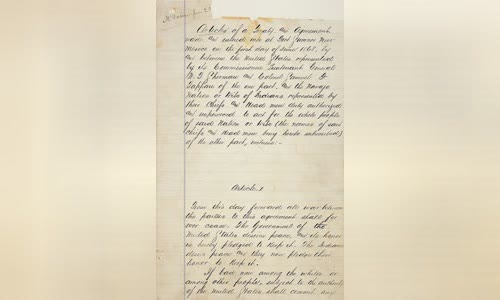 Articles of a Treaty and Agreement
made and entered into at Fort Sumner New
Mexico on the first day of June 1868, by
and between the United States represented
by its Commissioners Lieutenant General
W. T. Sherman and Colonel Samuel F.
Tappan of the one part, and the Navajo
Nation or tribe of Indians represented by
their Chiefs and Head men duly authorized
and empowered to act for the whole people
of said Nation or tribe (the names of said
Chiefs and Head men being hereto subscribed)
of the other part, witness:-
Article 1
From this day forward all war between
the parties to this agreement shall for
ever cease. The Government of the
United States desires peace, and its honor
is hereby pledged to keep it. The Indians
desire peace and they now pledge their
honor to keep it.
If bad men among the whites or
among other people, subject to the authority
of the United States shall commit any